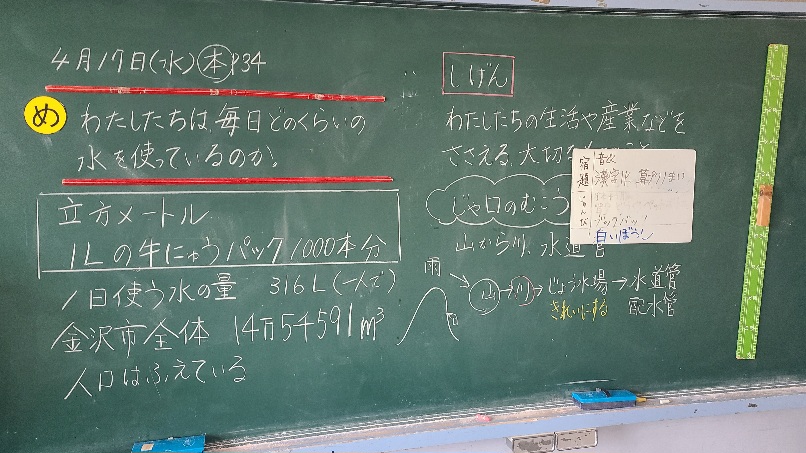 4月17日(水) 本 P34
め
わたしたちは、毎日どのくらいの
水を使っているのか。
立方メートル
1Lの牛にゅうパック1000本分
1日使う水の量 316L(一人で)
金沢市全体 14万54591m³
人口はふえている
しげん
わたしたちの生活や産業などを
ささえる大切
じゃ口のむこう
山から川、水道管
雨
山→川→じょう水場→水道管
きれいにする 配水管
宿題
音
漢字
白いぼうし